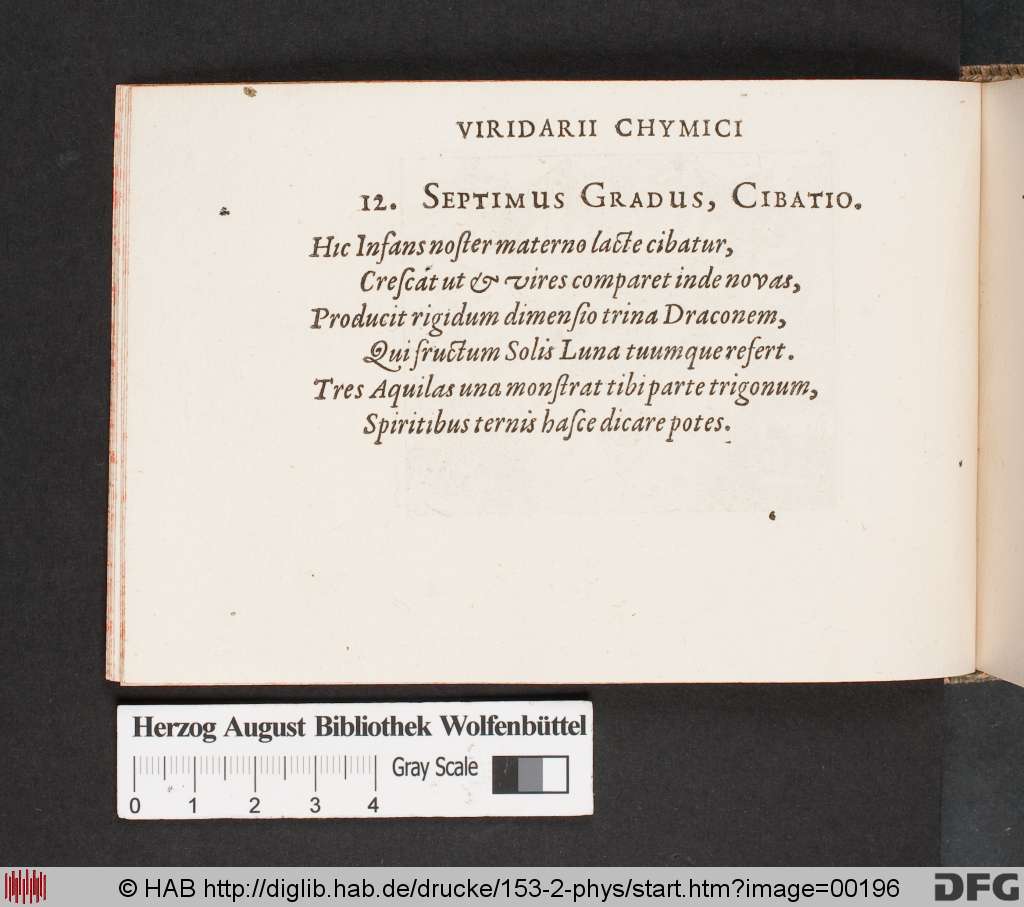 VIRIDARII CHYMICI
12. SEPTIMUS GRADUS, CIBATIO.
Hic Infans noſter materno lacte cibatur,
Creſcāt ut & vires comparet inde novas,
Producit rigidum dimenſio trina Draconem,
Qui fructum Solis Luna tuumque refert.
Tres Aquilas una monſtrat tibi parte trigonum,
Spiritibus ternis haſce dicare potes.
Herzog August Bibliothek Wolfenbüttel
Gray Scale
0 1 2 3 4
© HAB http://diglib.hab.de/drucke/153-2-phys/start.htm?image=00196
DFG